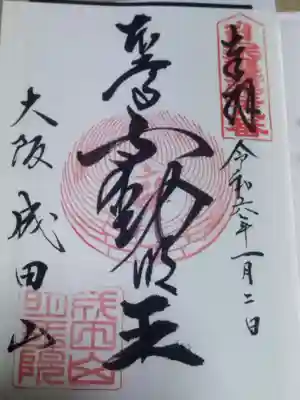 奉拝
令和六年一月二日
本尊不動明王
大阪成田山
成田山
明王院